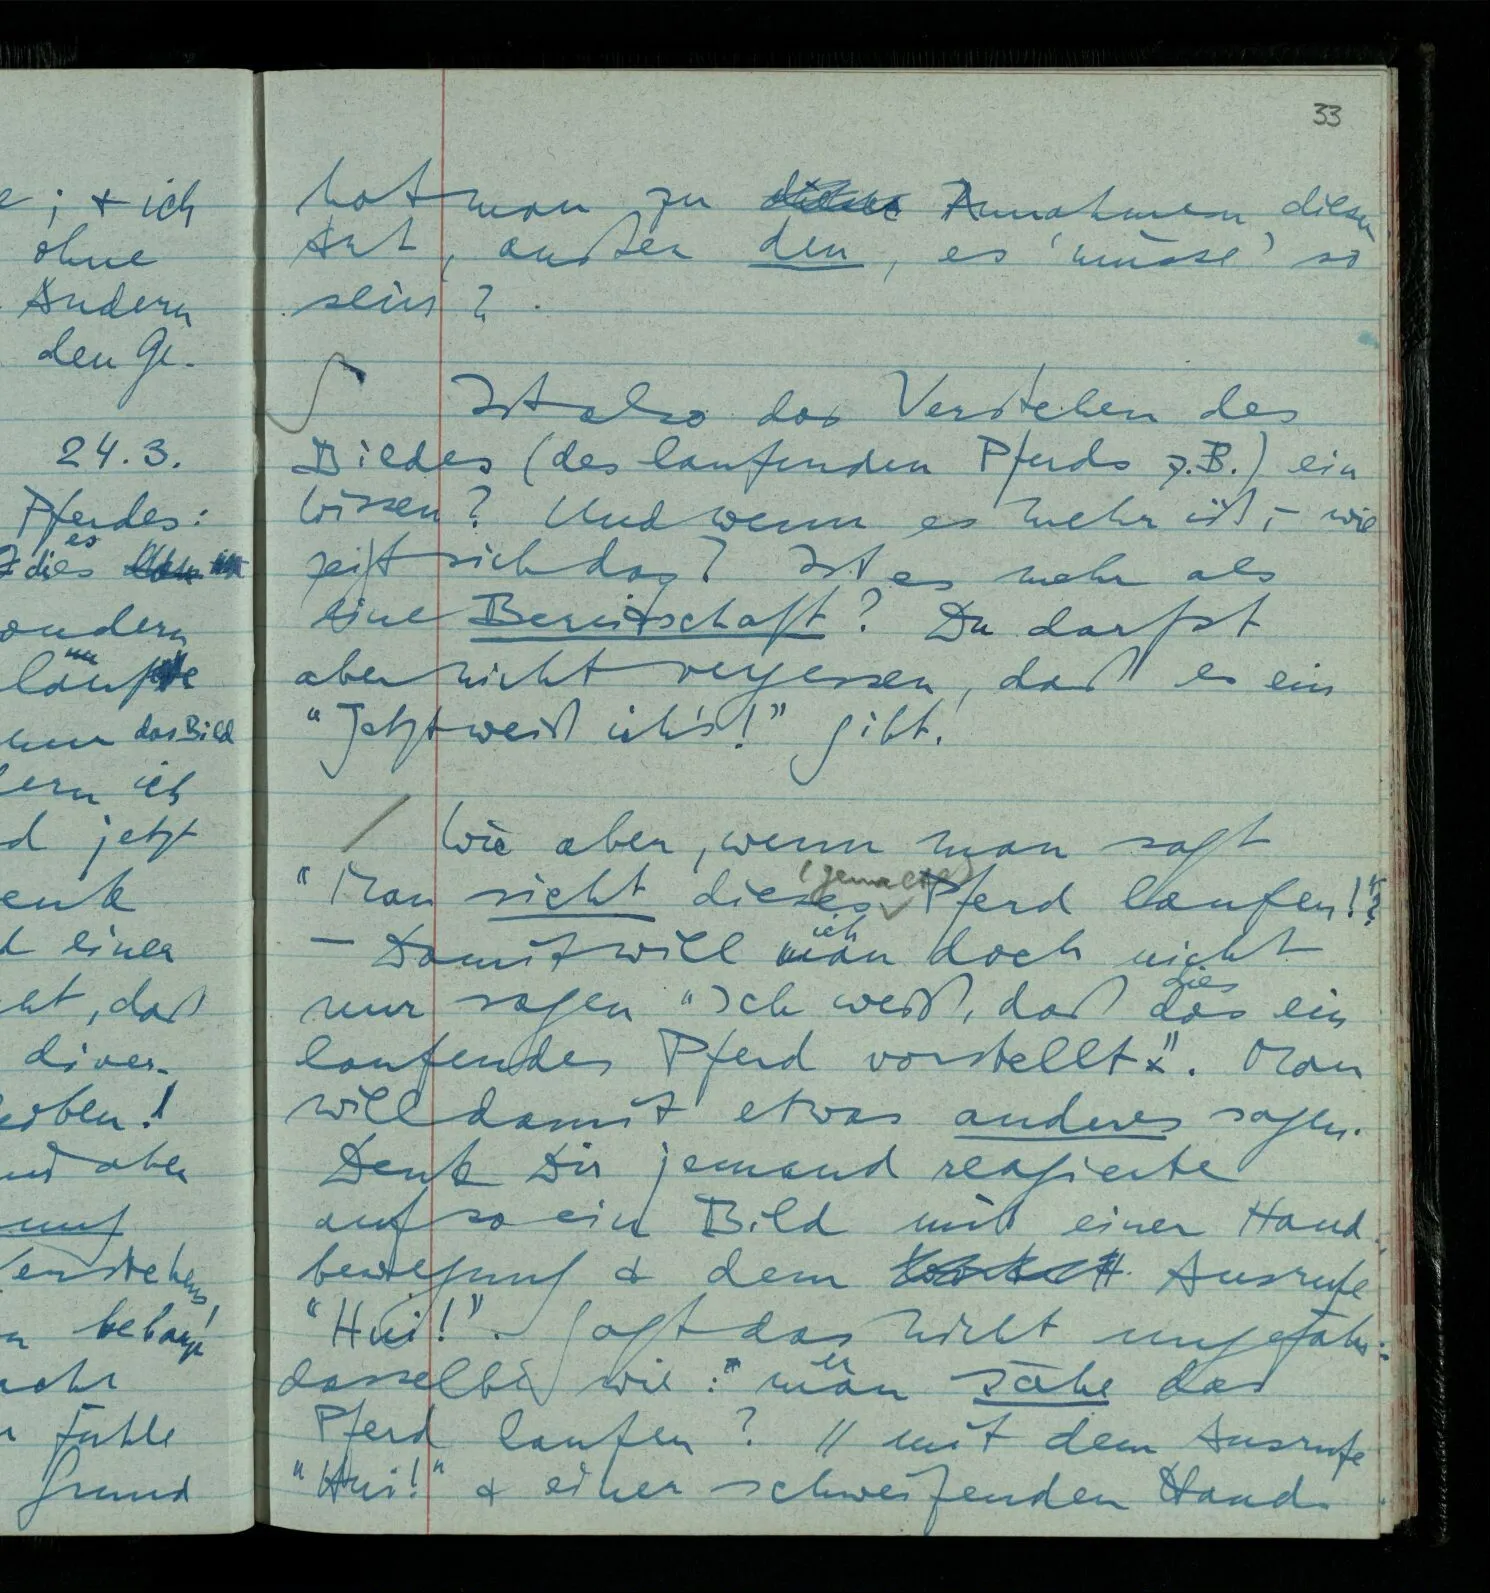 e; & ich
ohne
Andern
den Ge-
24.3.
Pferdes:
es
dies
sondern
das Bild
dern ich
d jetzt
enk
d einer
ht, daß
diver-
oben!
und aber
ung
Verstehens,
acht
Fühle
Grund
33
hat man zu Annahmen dieser
Art, außer den, es 'müsse' so
sein?
∫ Ist also das Verstehen des
Bildes (des laufenden Pferds z.B.) ein
Wissen? Und wenn es mehr ist, – wie
zeigt sich das? Ist es mehr als
eine Bereitschaft? Du darfst
aber nicht vergessen, daß es ein
"Jetzt weiß ich's!" gibt.
/ Wie aber, wenn man sagt
(gemalte)
"Man sieht dieses Pferd laufen!"?
ich
– Damit will man doch nicht
dies
nur sagen "Ich weiß, daß das ein
laufendes Pferd vorstellt". Man
will damit etwas anderes sagen.
Denk Dir jemand reagierte
auf so ein Bild mit einer Hand-
bewegung & dem Ausrufe
"Hui!". Sagt das nicht ungefähr
er
dasselbe wie: man sähe das
Pferd laufen? // mit dem Ausrufe
"Hui!" & einer schweifenden Hand-